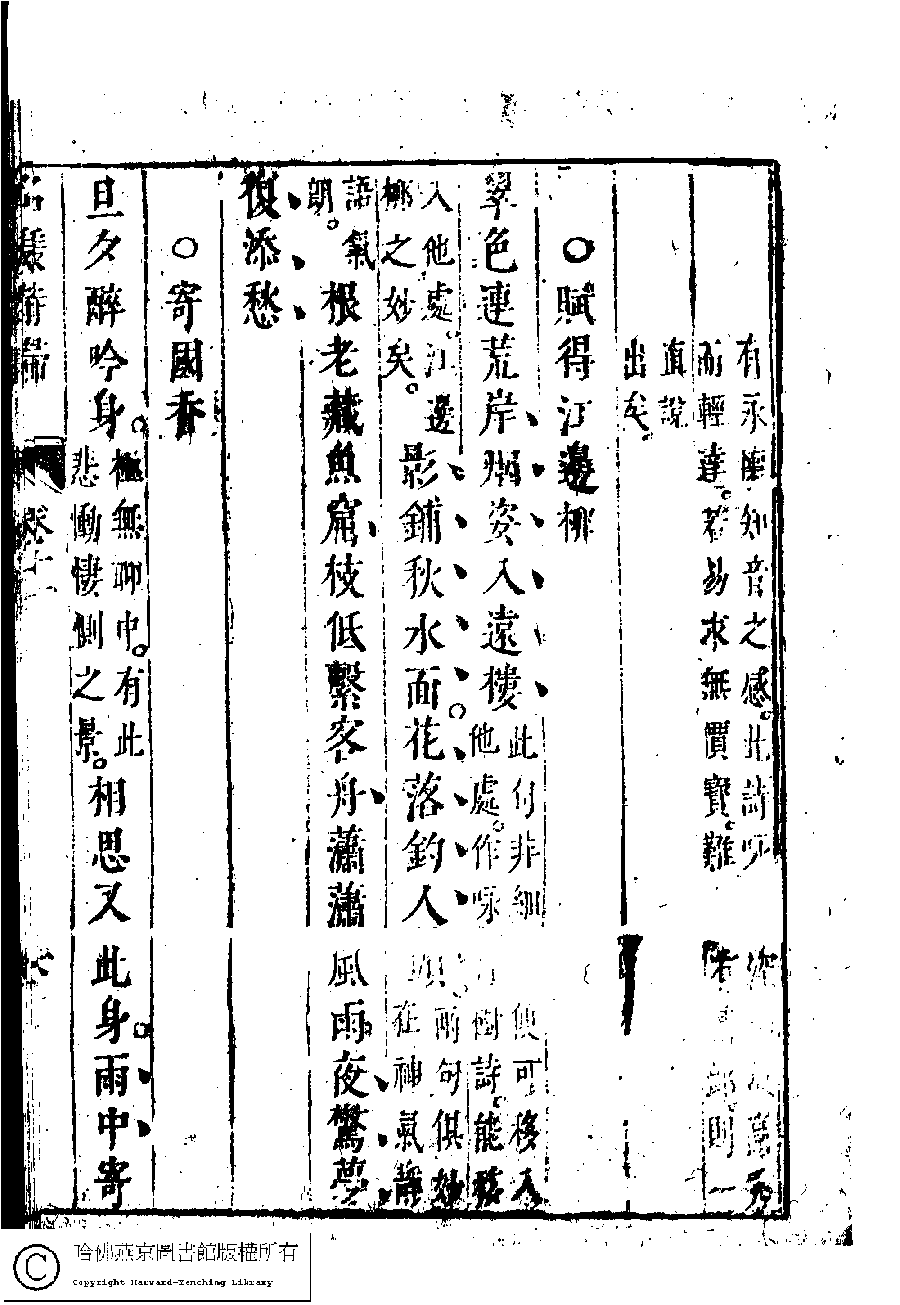 有永懷知音之感。此詩
而輕達。若易求無價寶。難者 郎則一
直說
出矣。
○賦得江邊柳
翠色連荒岸、烟姿入遠樓
此句非細 便可移入
他處。作咏 樹詩。能移
入他處。江邊
柳之妙矣。
影鋪秋水面。花落釣人
兩句俱妙
在神氣靜
語氣
朗。
根老藏魚窟、枝低繫客舟、瀟瀟風雨夜、驚夢
復添愁
○寄國香
旦夕醉吟身。
極無聊中。有此
悲慟悽惻之景。
相思又此身。雨中寄
名媛詩歸 卷十一
哈佛燕京圖書館版權所有
Copyright Harvard-Yenching Library